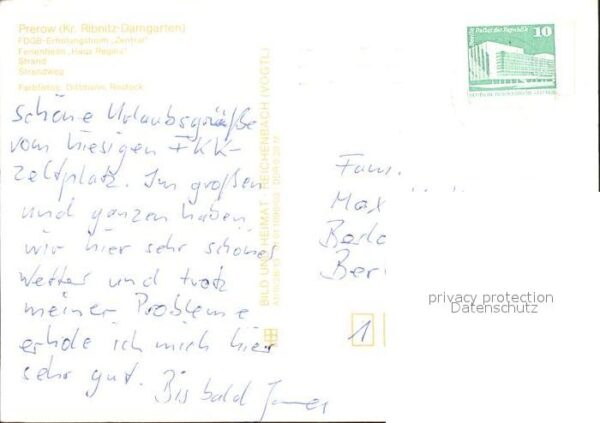 Prerow (Kr. Ribnitz-Damgarten)
FDGB-Erholungsheim „Zentral“
Ferienheim „Haus Regina“
Strand
Strandweg
Farbfotos: Dittmann, Rostock
schöne Urlaubsgrüße
vom hiesigen FKK-
zeltplatz. Im großen
und ganzen haben
wir hier sehr schönes
Wetter und trotz
meiner Probleme
erhole ich mich hier
sehr gut. Bis bald
BILD UND HEIMAT REICHENBACH (VOGTL)
Berlin Palast der Republik
10
Fam.
Max
Ber
1
privacy protection
Datenschutz